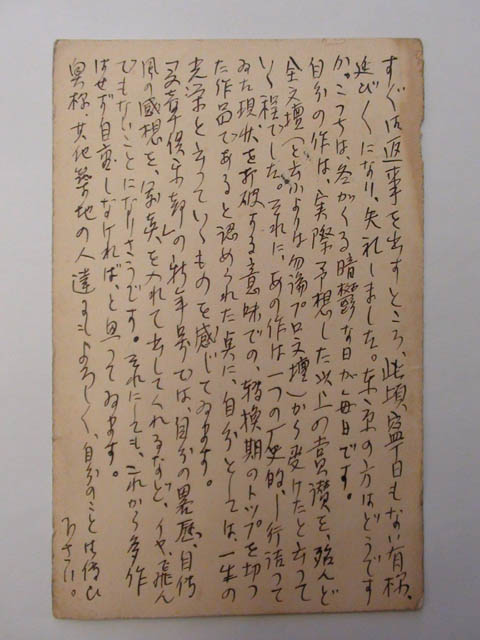 すぐ御返事を出すところ、此頃、寧日もない有様、
延び〱になり、失礼しました。東京の方はどうです
か。こっちは、冬がくる暗鬱な日が毎日です。
自分の作は、実際予想した以上の賞讃を、殆んど
全文壇(と云ふよりは勿論プロ文壇)から受けたと云って
いゝ程でした。それに、あの作は一つの歴史的、――行詰って
ゐた現状を打破する意味での、転換期のトップを切っ
た作品であると認められた点に、自分としては、一生の
光栄と云っていゝものを感じてゐます。
「文章倶楽部」の新年号では、自分の略歴、自伝
風の感想を、写真を入れて出してくれるなど、イヤ、飛ん
でもないことになりさうです。それにしても、これから多作
はせず自重しなければ、と思ってゐます。
奥様、其他築地の人達にもよろしく、自分のこと御伝ひ
下さい。